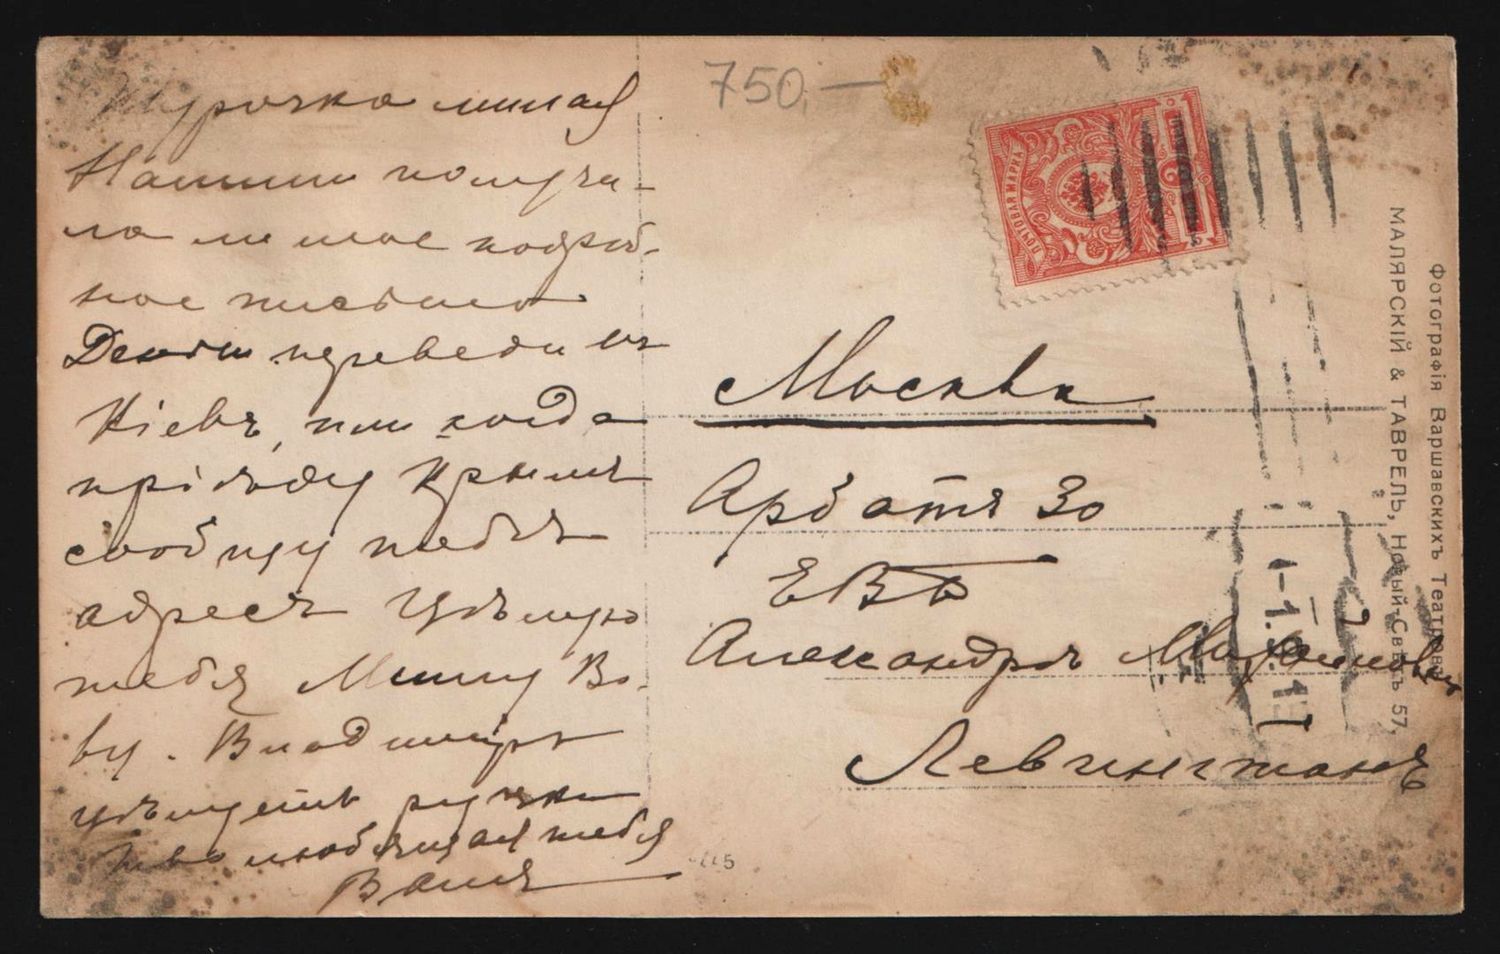 750,—
Шурочка милая
получи-
ла милое подроб-
ное письмо
Деньги переведи въ
Кіевъ, или когда
пріѣду Крымъ
сообщу тебѣ
адресъ Цѣлую
тебя Мишу Во-
ву. Владиміръ
цѣлуетъ ручки
любящая тебя
Валя
ПОЧТОВАЯ МАРКА
Москва
Арбатъ 30
ЕВБ
Александрѣ Михайловнѣ
Левингтонъ
Фотографія Варшавскихъ Театровъ
МАЛЯРСКІЙ & ТАВРЕЛЬ, Новый-Свѣтъ 57.